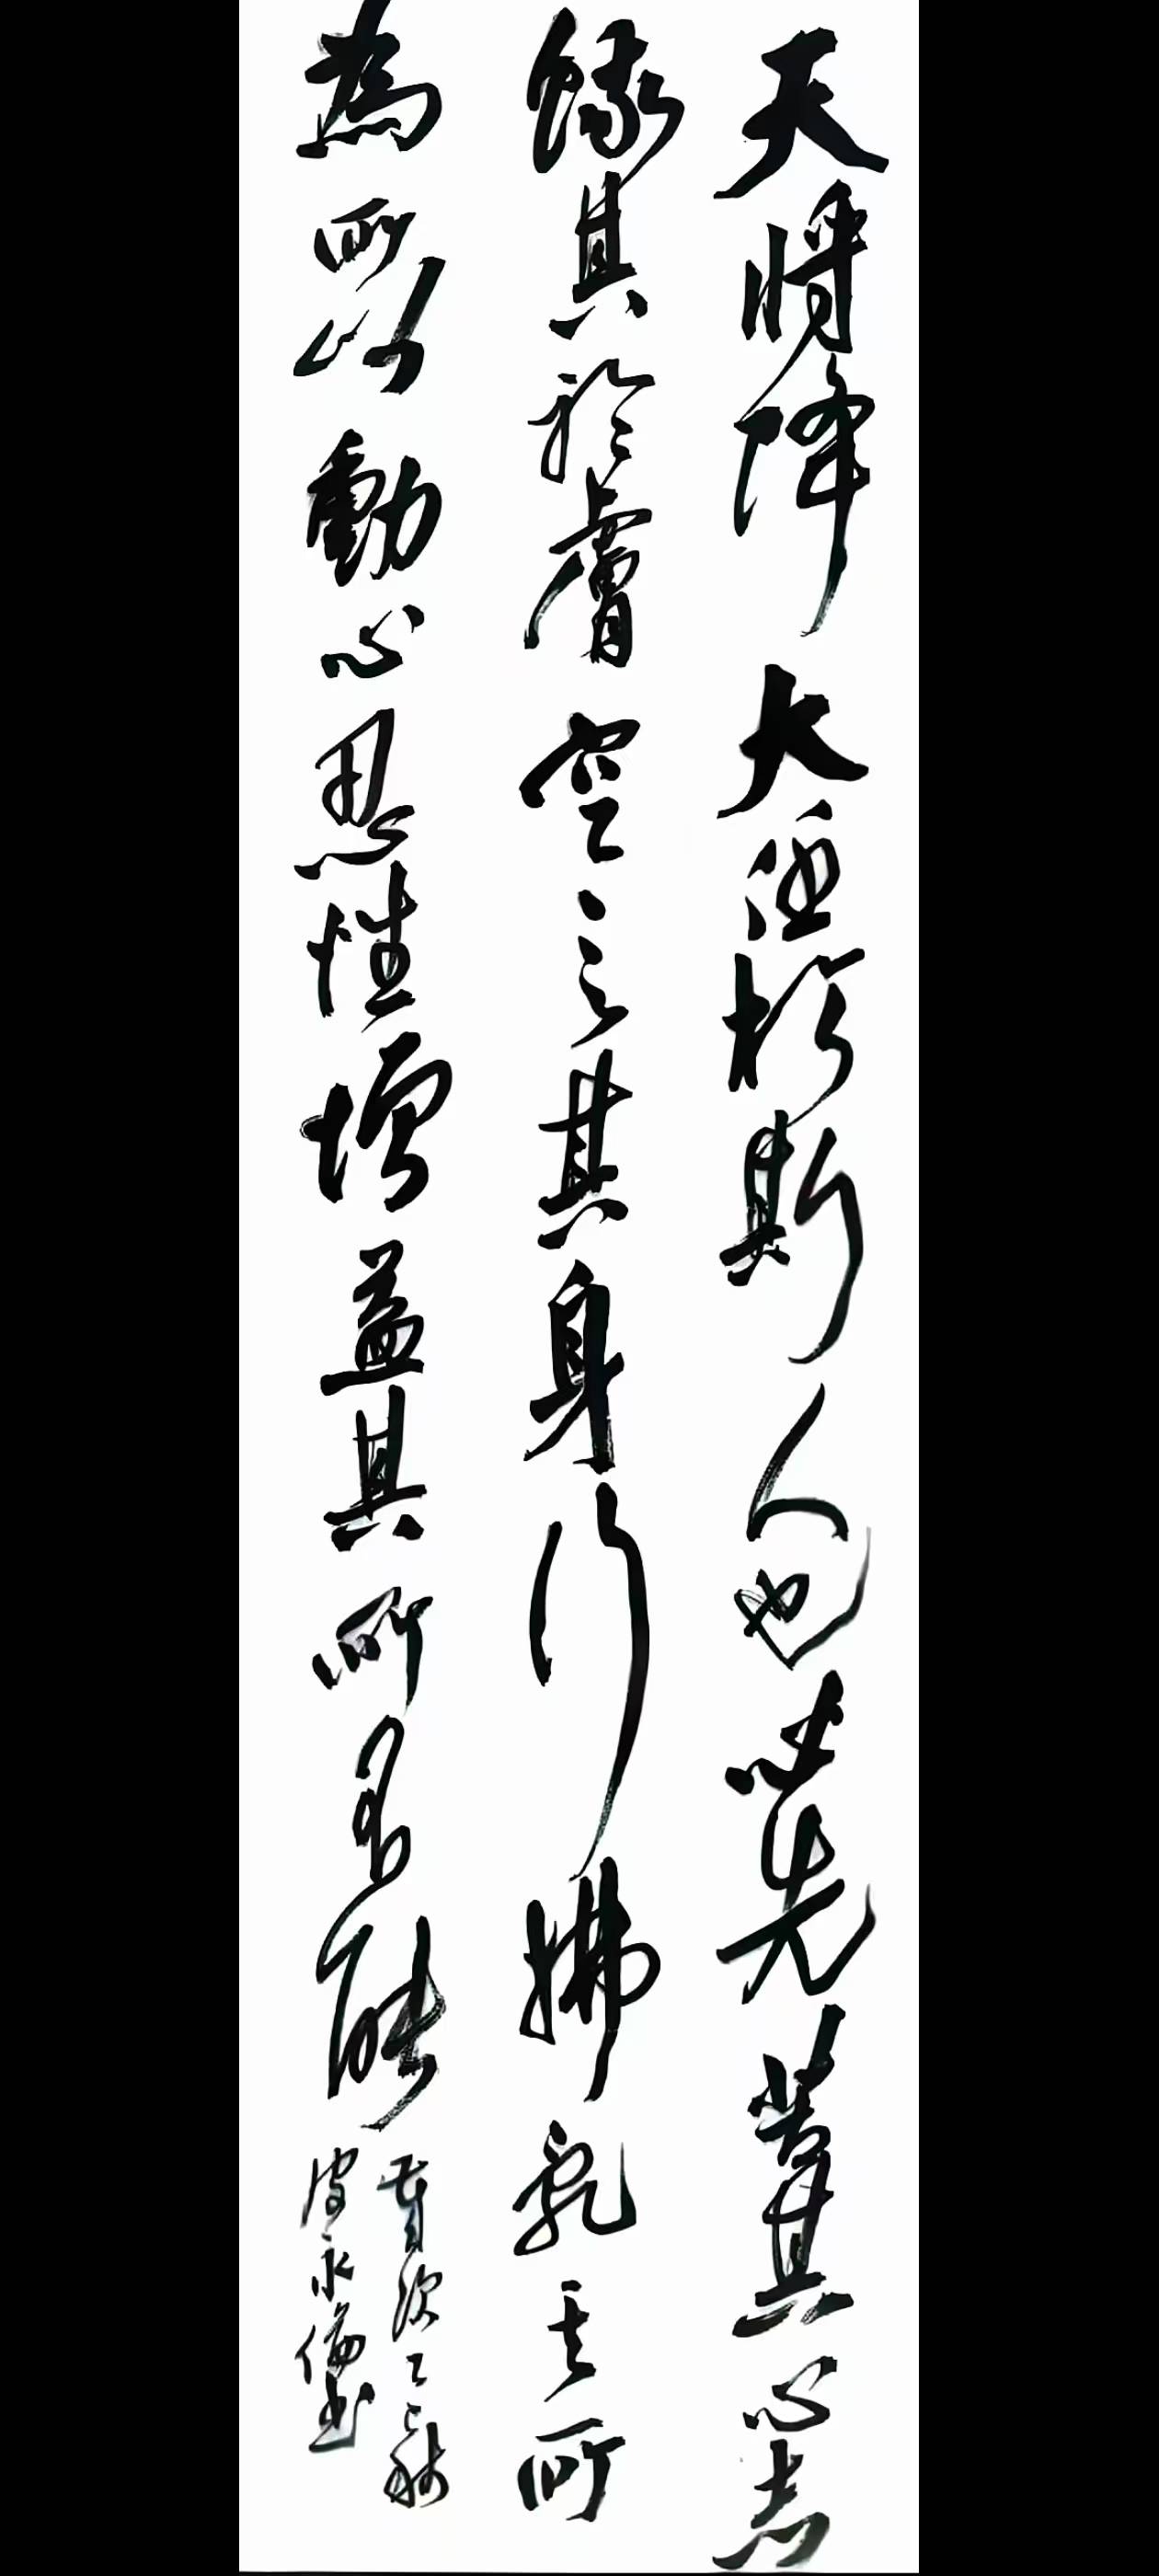 天將降大任於斯人也必先苦其心志
餓其於膚空乏其身行拂亂其所
為所以動心忍性增益其所不能
歲次乙巳秋
皮永倫書